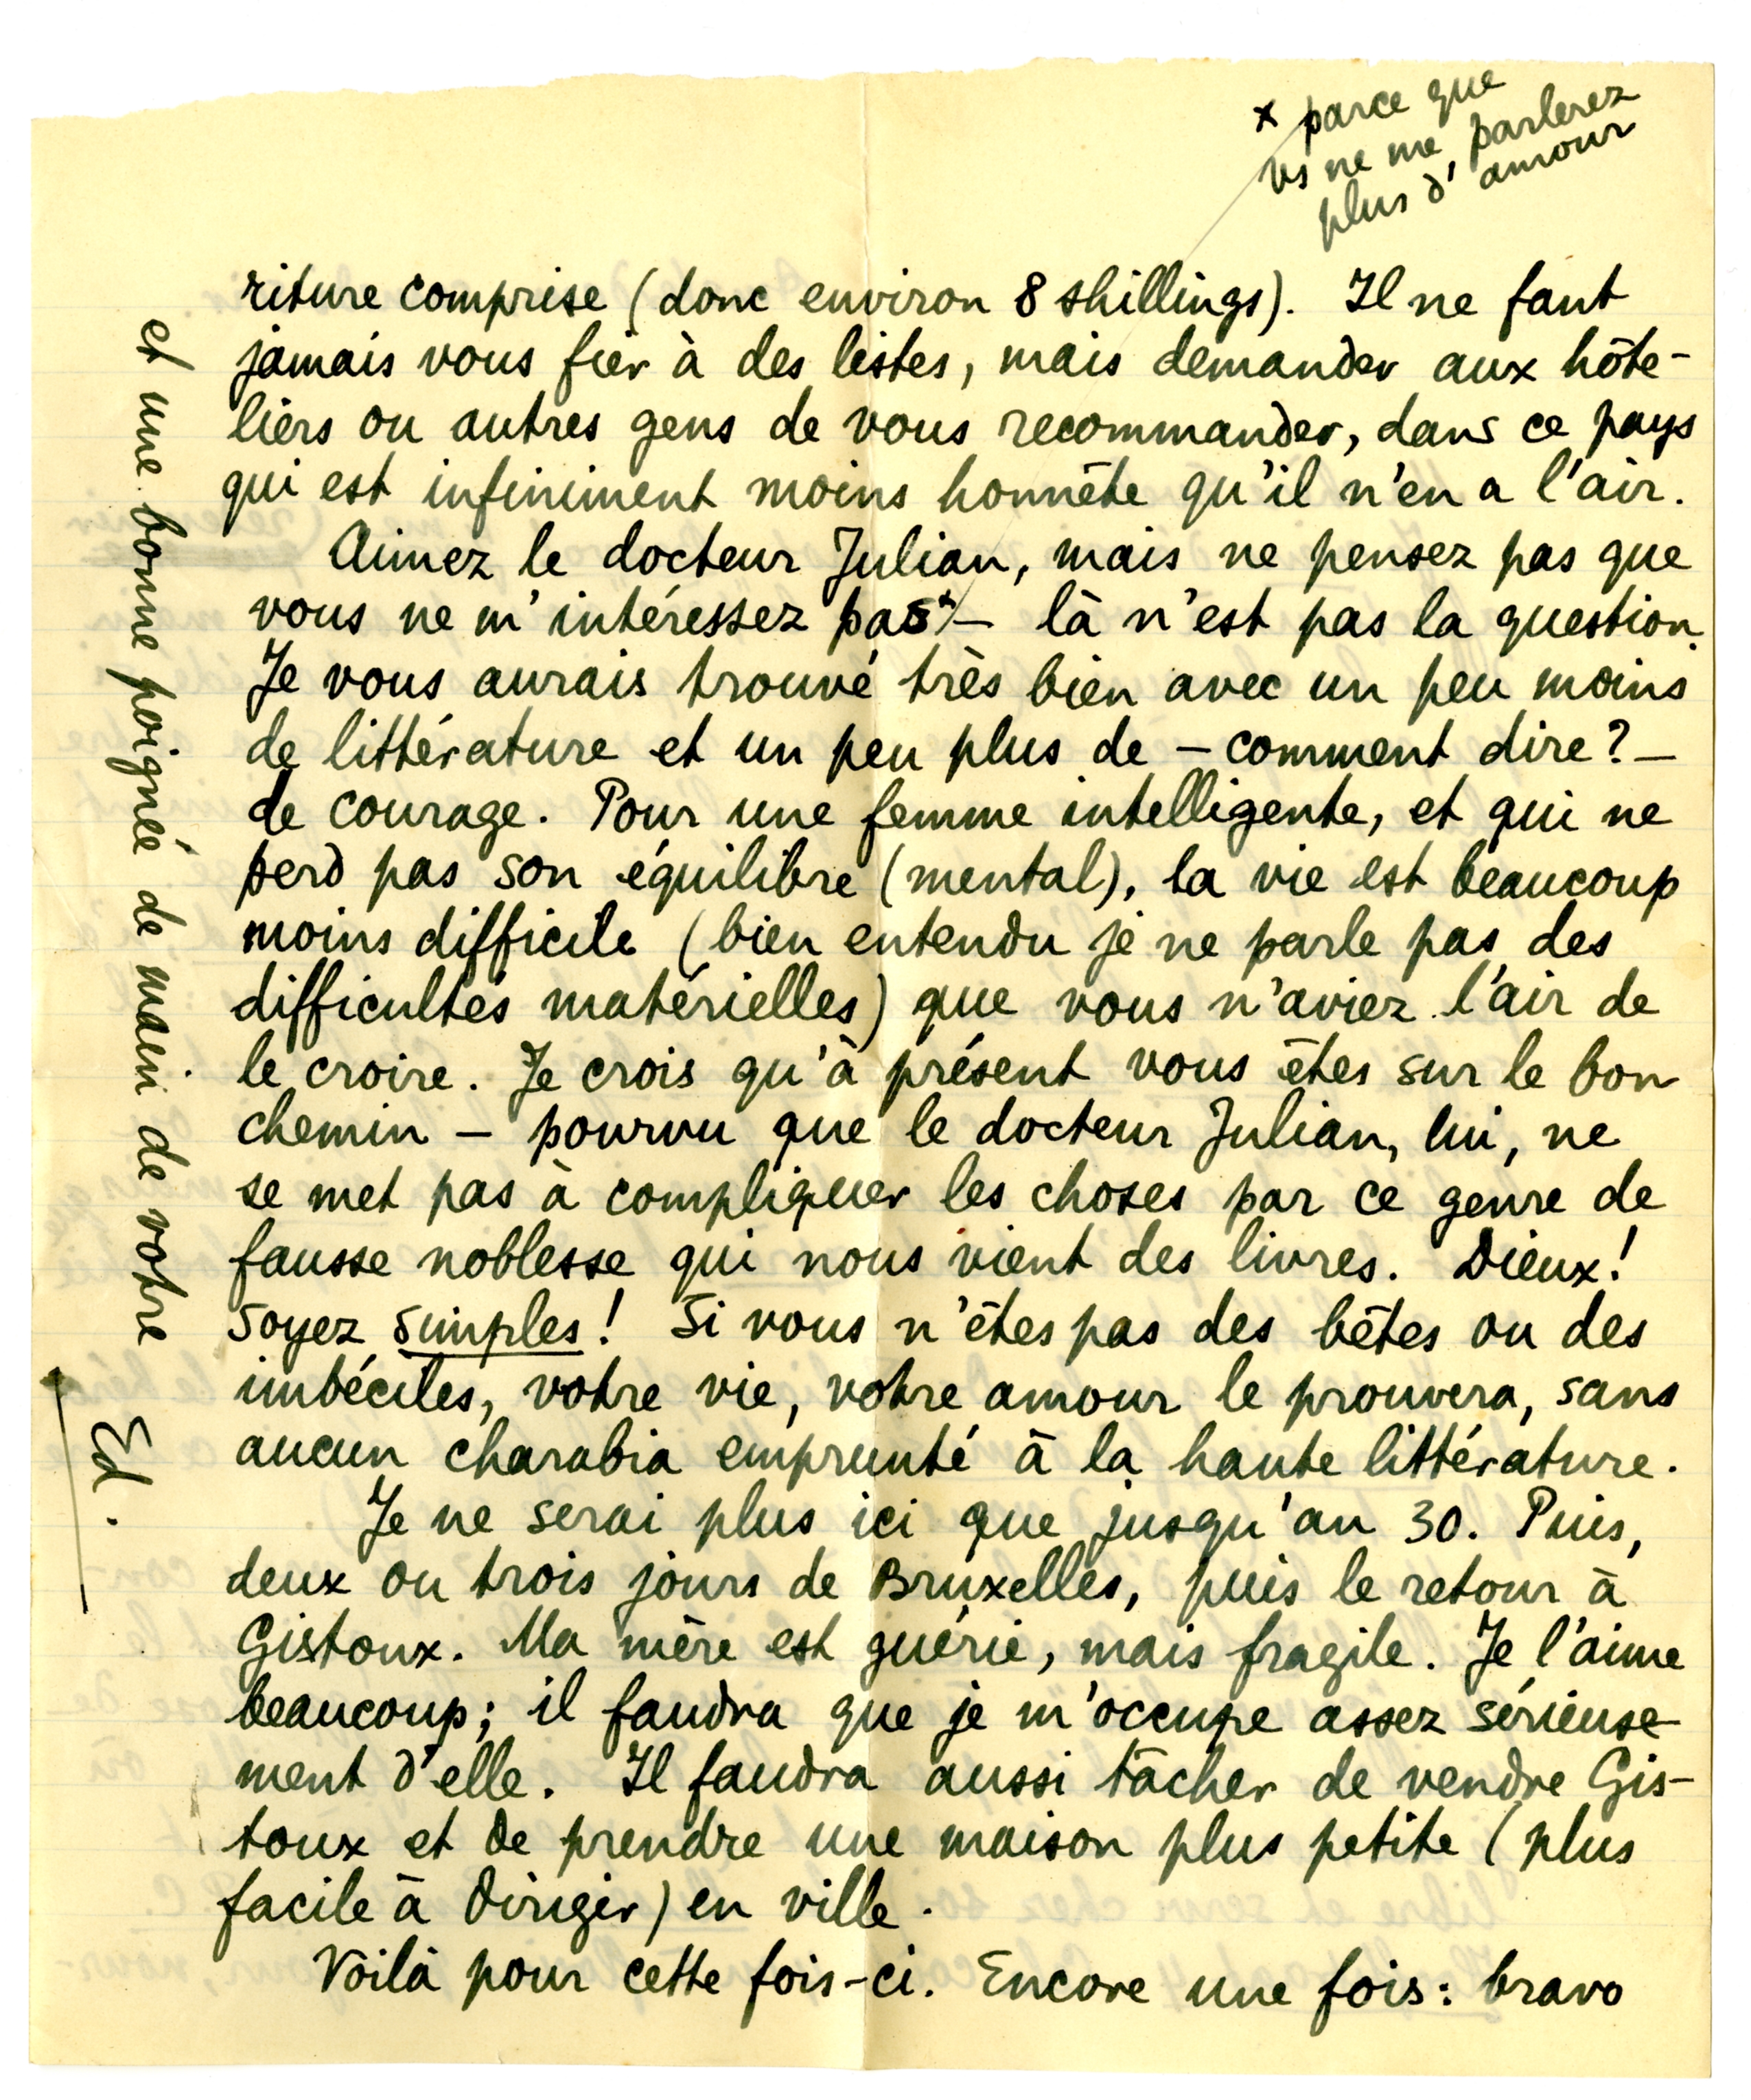 x parce que
vs ne me parlerez
plus d'amour
riture comprise (donc environ 8 shillings). Il ne faut
jamais vous fier à des listes, mais demander aux hôte-
liers ou autres gens de vous recommander, dans ce pays
qui est infiniment moins honnête qu'il n'en a l'air.
Aimez le docteur Julian, mais ne pensez pas que
vous ne m'intéressez pas x – là n'est pas la question.
Je vous aurais trouvé très bien avec un peu moins
de littérature et un peu plus de – comment dire ? –
de courage. Pour une femme intelligente, et qui ne
perd pas son équilibre (mental), la vie est beaucoup
moins difficile (bien entendu je ne parle pas des
difficultés matérielles) que vous n'aviez l'air de
le croire. Je crois qu'à présent vous êtes sur le bon
chemin – pourvu que le docteur Julian, lui, ne
se met pas à compliquer les choses par ce genre de
fausse noblesse qui nous vient des livres. Dieux !
Soyez simples ! Si vous n'êtes pas des bêtes ou des
imbéciles, votre vie, votre amour le prouvera, sans
aucun charabia emprunté à la haute littérature.
Je ne serai plus ici que jusqu'au 30. Puis,
deux ou trois jours de Bruxelles, puis le retour à
Gistoux. Ma mère est guérie, mais fragile. Je l'aime
beaucoup ; il faudra que je m'occupe assez sérieuse-
ment d'elle. Il faudra aussi tâcher de vendre Gis-
toux et de prendre une maison plus petite (plus
facile à diriger) en ville.
Voilà pour cette fois-ci. Encore une fois : bravo
et une bonne poignée de main de votre
Ed.